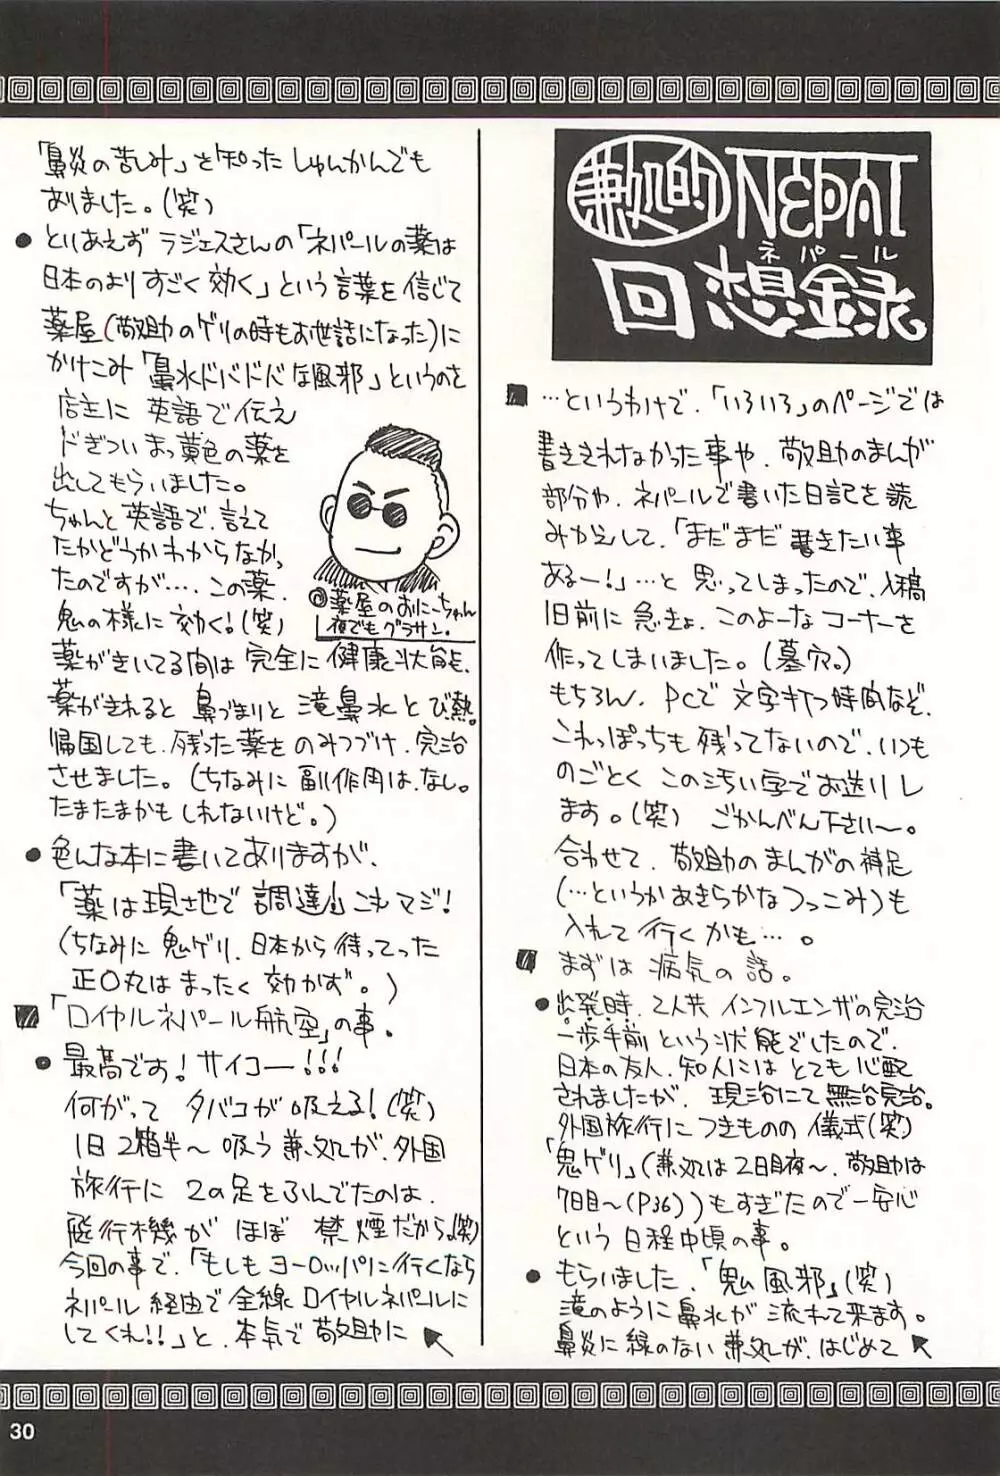 兼処的NEPAL
ネパール
回想録
■…というわけで、「いろいろ」のページでは
書ききれなかった事や、敬助のまんが
部分や、ネパールで書いた日記を読
みかえして、「まだまだ書きたい事
あるー!」…と思ってしまったので、入稿
1日前に急きょ、このよーなコーナーを
作ってしまいました。(墓穴。)
もちろん、PCで文字打つ時間など、
これっぽっちも残ってないので、いつも
のごとくこの汚い字でお送りし
ます。(笑) ごかんべん下さい〜。
合わせて、敬助のまんがの補足
(…というかあきらかなつっこみ)も
入れて行くかも…。
■まずは病気の話。
●出発時、2人共インフルエンザの完治
一歩手前という状態でしたので、
日本の友人、知人にはとても心配
されましたが、現治にて無治完治。
外国旅行につきものの儀式(笑)
「鬼ゲリ」(兼処は2日目夜〜、敬助は
7日目〜(P36))もすぎたので一安心
という日程中頃の事。
●もらいました、「鬼風邪」(笑)
滝のように鼻水が流れて来ます。
鼻炎に縁のない兼処が、はじめて
「鼻炎の苦しみ」を知ったしゅんかんでも
ありました。(笑)
●とりあえずラジェスさんの「ネパールの薬は
日本のよりすごく効く」という言葉を信じて
薬屋(敬助のゲリの時もお世話になった)に
かけこみ「鼻水ドバドバな風邪」というのを
店主に英語で伝え
ドぎついまっ黄色の薬を
出してもらいました。
ちゃんと英語で、言えて
たかどうかわからなかっ
たのですが…、この薬、
鬼の様に効く!(笑)
◎薬屋のおにーちゃん
夜でもグラサン。
薬がきいてる間は完全に健康状態、
薬がきれると鼻づまりと滝鼻水とび熱。
帰国しても、残った薬をのみつづけ、完治
させました。(ちなみに副作用は、なし。
たまたまかもしれないけど。)
●色んな本に書いてありますが、
「薬は現地で調達」これマジ!
(ちなみに鬼ゲリ、日本から持ってった
正〇丸はまったく効かず。)
■「ロイヤルネパール航空」の事。
●最高です!サイコー!!!
何がってタバコが吸える!(笑)
1日2箱半〜吸う兼処が、外国
旅行に2の足をふんでたのは、
飛行機がほぼ禁煙だから。(笑)
今回の事で、「もしもヨーロッパに行くなら
ネパール経由で全線ロイヤルネパールに
してくれ!!」と、本気で敬助に
30